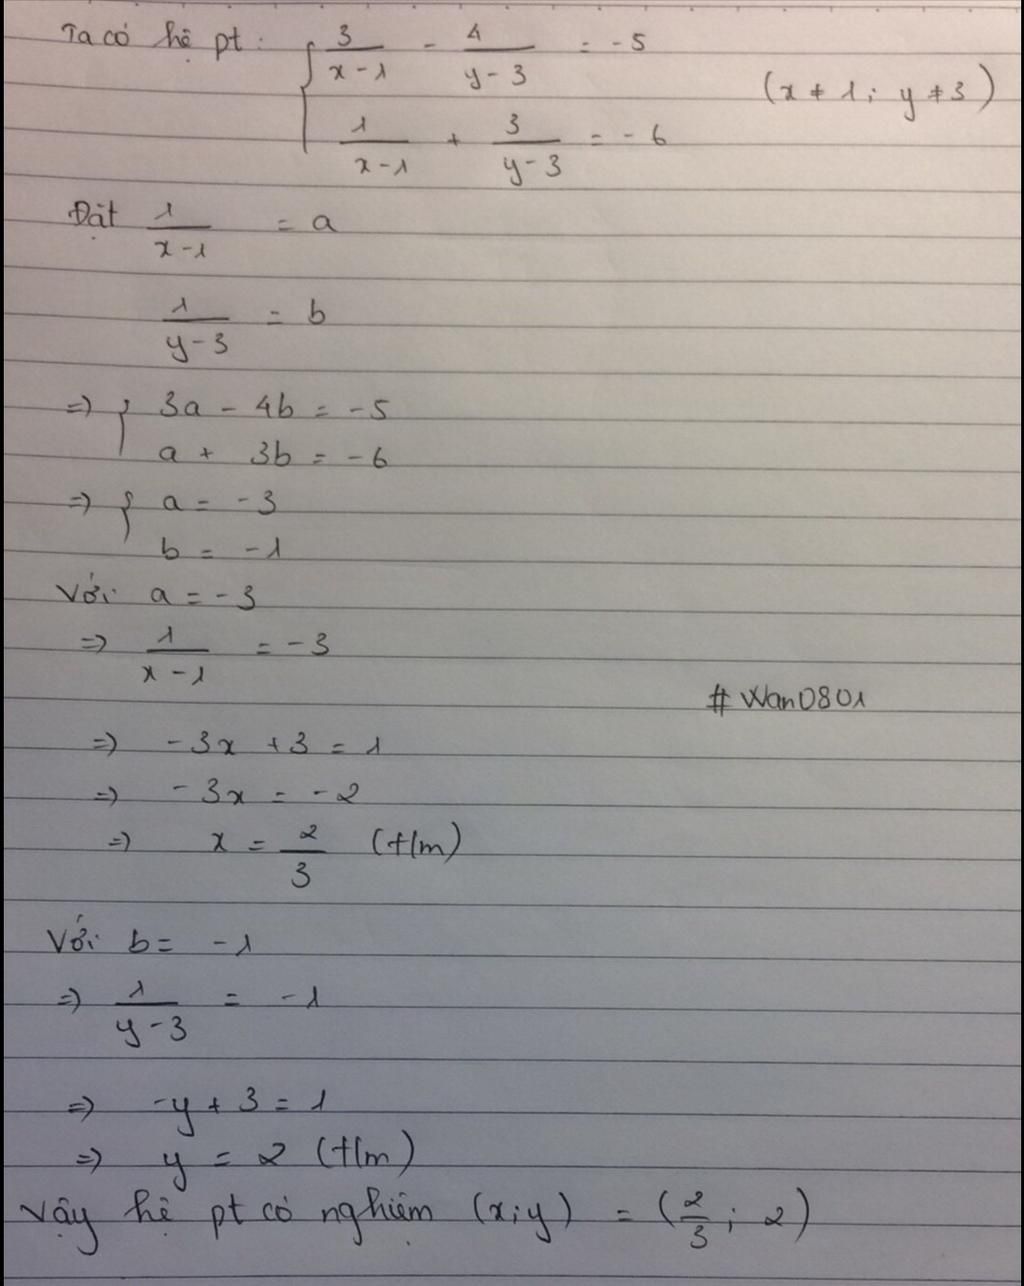 Ta có hệ pt: { 3/(x-1) - 4/(y-3) = -5
1/(x-1) + 3/(y-3) = -6 (x ≠ 1; y ≠ 3)
Đặt 1/(x-1) = a
1/(y-3) = b
=> { 3a - 4b = -5
a + 3b = -6
=> { a = -3
b = -1
Với a = -3
=> 1/(x-1) = -3
# Wan0801
=> -3x + 3 = 1
=> -3x = -2
=> x = 2/3 (t/m)
Với b = -1
=> 1/(y-3) = -1
=> -y + 3 = 1
=> y = 2 (t/m)
Vậy hệ pt có nghiệm (x;y) = (2/3; 2)